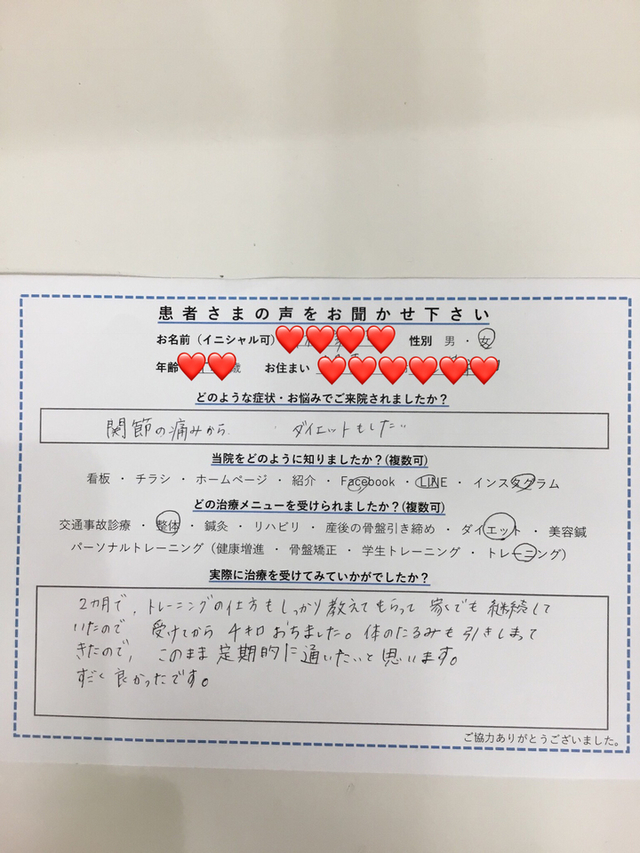 患者さまの声をお聞かせ下さい
お名前（イニシャル可） 性別 男・女
年齢 歳 お住まい
どのような症状・お悩みでご来院されましたか？
関節の痛みから ダイエットもしたい
当院をどのように知りましたか？(複数可)
看板・チラシ・ホームページ・紹介・Facebook・LINE・インスタグラム
どの治療メニューを受けられましたか？(複数可)
交通事故診療・整体・鍼灸・リハビリ・産後の骨盤引き締め・ダイエット・美容鍼
パーソナルトレーニング（健康増進・骨盤矯正・学生トレーニング・トレーニング）
実際に治療を受けてみていかがでしたか？
2カ月で、トレーニングの仕方もしっかり教えてもらって 家でも継続して
いたので 受けてから 4キロおちました。体のたるみも引きしまって
きたので、このまま定期的に通いたいと思います。
すごく良かったです。
ご協力ありがとうございました。